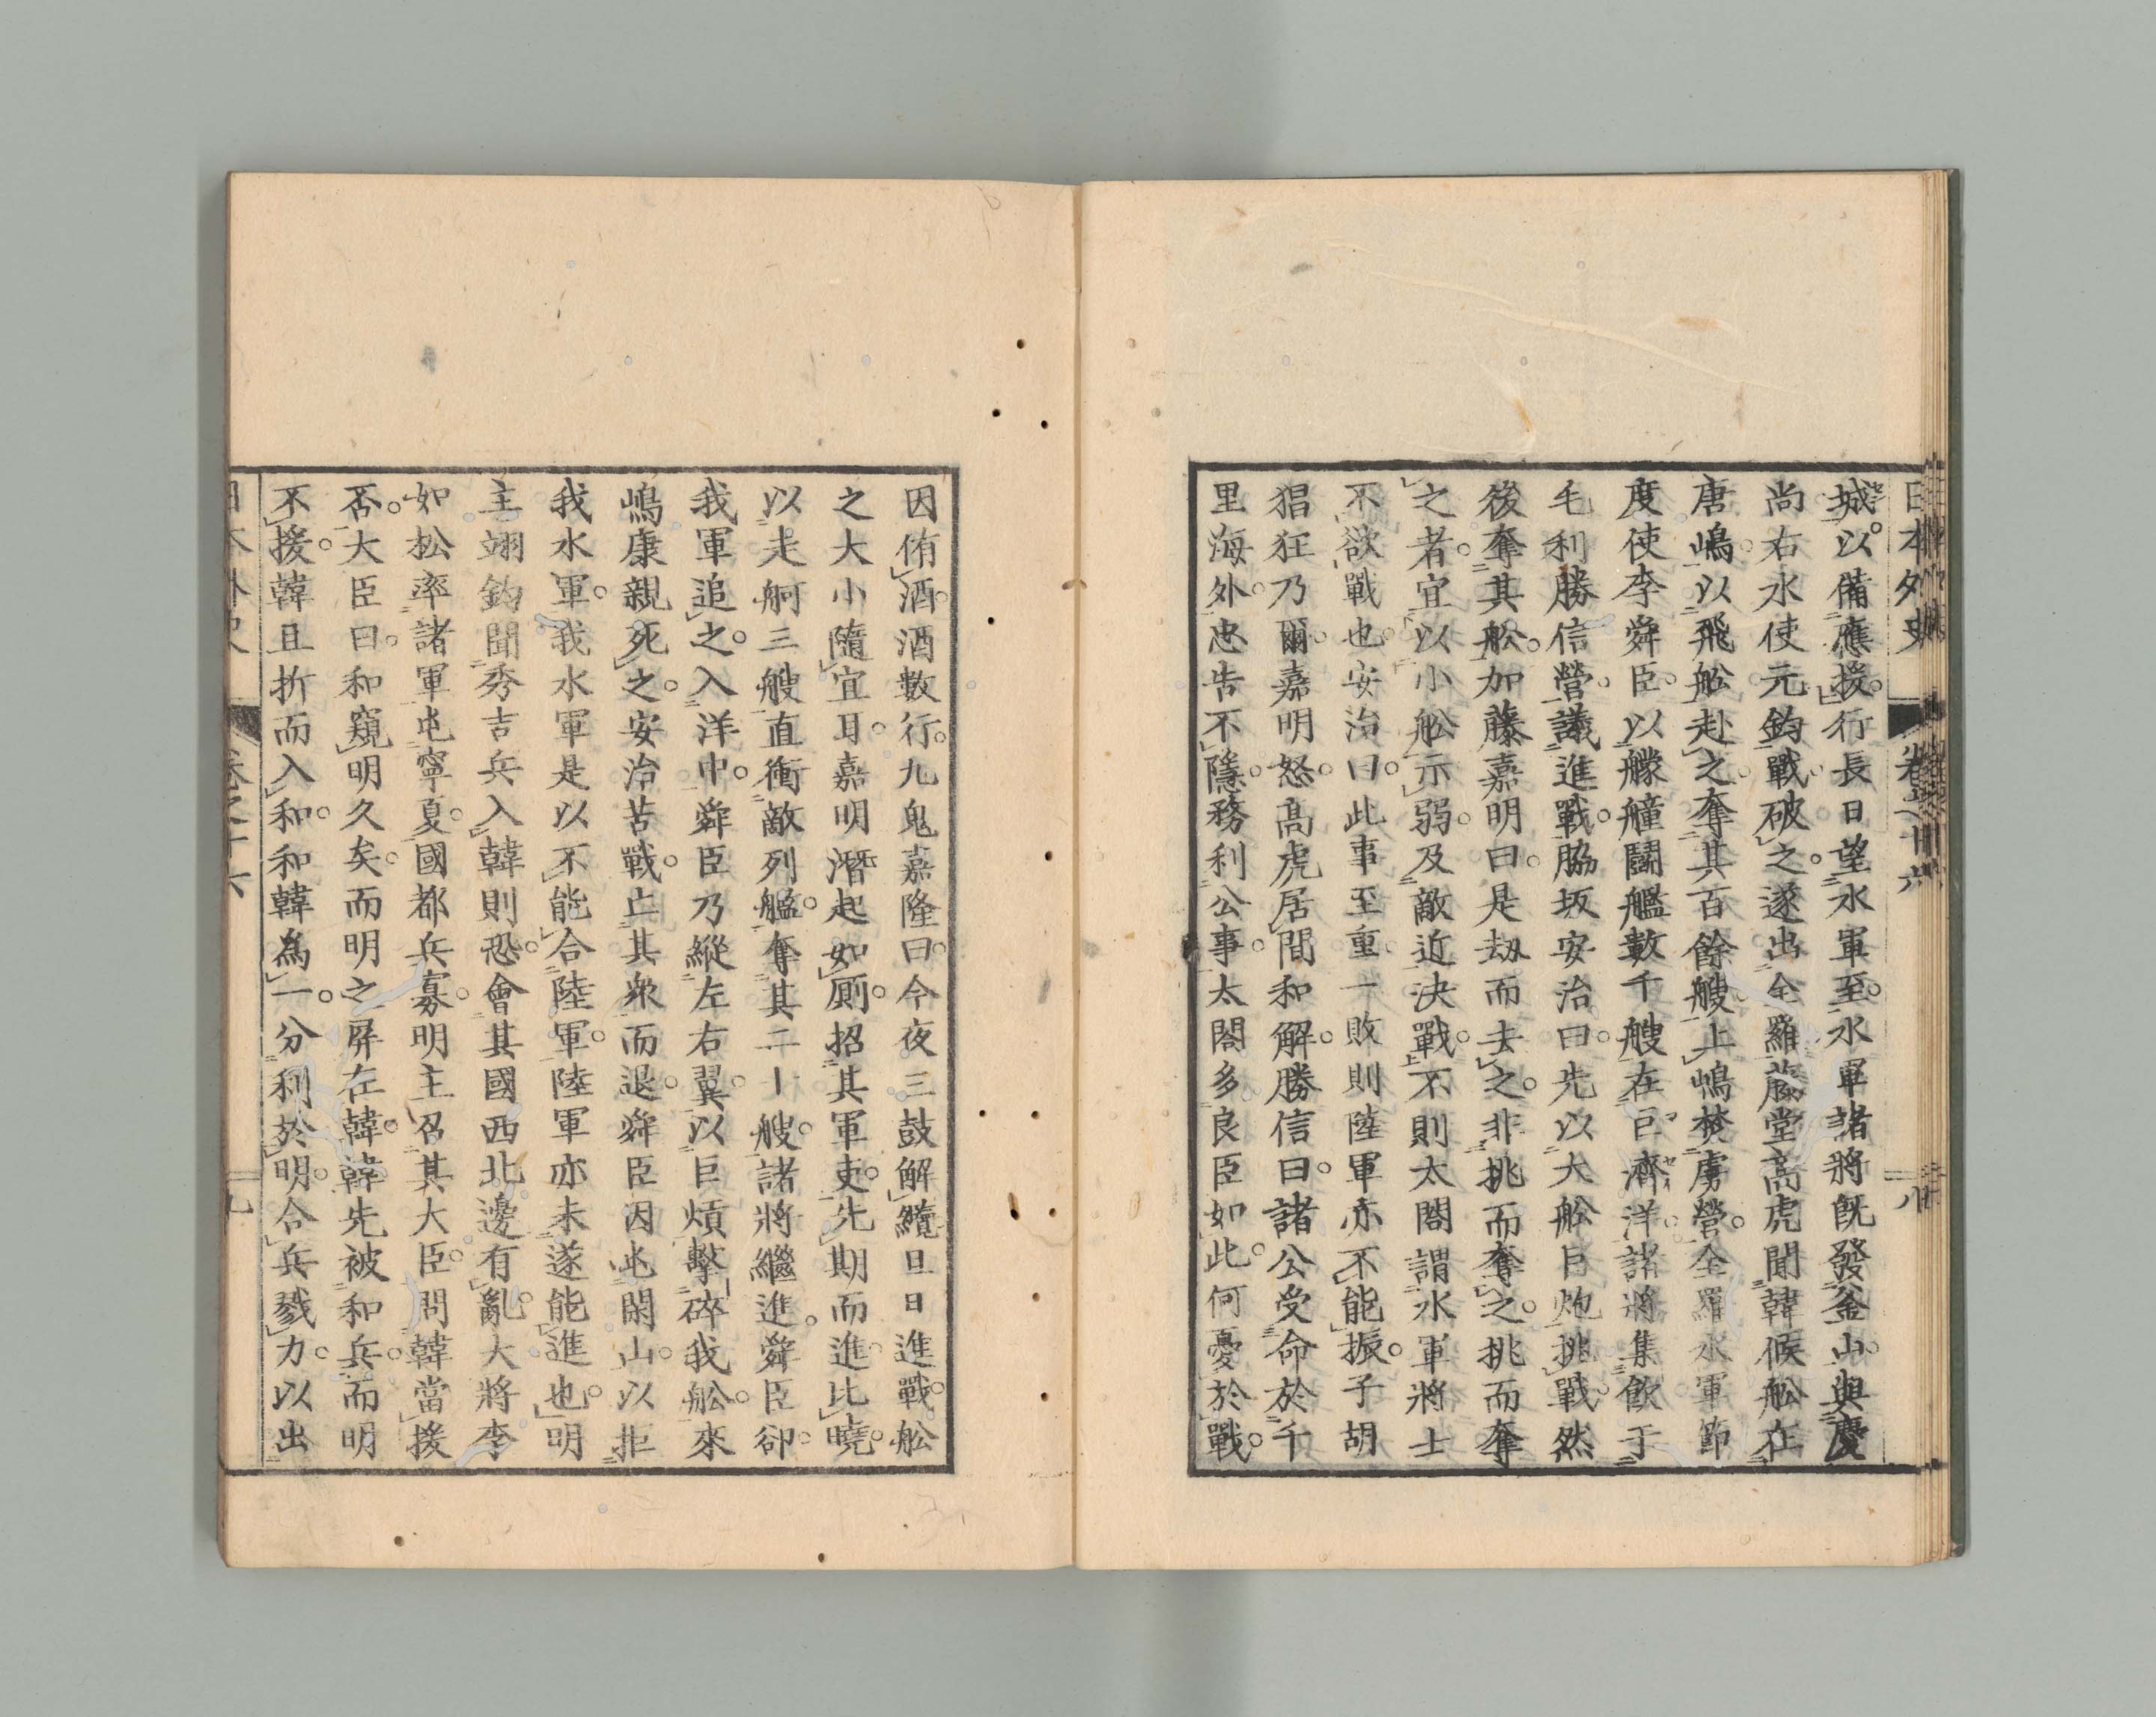 日本外史 卷之十六 八
城。以備應援。行長日望水軍至。水軍諸將既發釜山。與慶
尚右水使元鈞戰破之。遂出全羅。藤堂高虎聞韓候舩在
唐嶋。以飛舩赴之。奪其百餘艘。上嶋焚虜營。全羅水軍節
度使李舜臣。以艨艟鬪艦數千艘在巨濟洋。諸將集飲于
毛利勝信營。議進戰。脇坂安治曰。先以大舩巨炮挑戰。然
後奪其舩。加藤嘉明曰。是劫而去之。非挑而奪之。挑而奪
之者。宜以小舩示弱。及敵近決戰。不則太閤謂水軍將士
不欲戰也。安治曰。此事至重。一敗則陸軍亦不能振。子胡
猖狂乃爾。嘉明怒。高虎居間和解。勝信曰。諸公受命於千
里海外。忠告不隱。務利公事。太閤多良臣如此。何憂於戰。
因侑酒。酒數行。九鬼嘉隆曰。今夜三鼓解纜。旦日進戰。舩
之大小隨宜耳。嘉明潛起如厠。招其軍吏。先期而進。比曉。
以走舸三艘直衝敵列艦。奪其二十艘。諸將繼進。舜臣卻。
我軍追之。入洋中。舜臣乃縱左右翼。以巨熕擊碎我舩。來
嶋康親死之。安治苦戰。亡其衆而退。舜臣因屯閑山。以拒
我水軍。我水軍是以不能合陸軍。陸軍亦未遂能進也。明
主翊鈞聞秀吉兵入韓則恐。會其國西北邊有亂。大將李
如松率諸軍屯寧夏。國都兵寡。明主召其大臣。問韓當援
否。大臣曰。和窺明久矣。而明之屏在韓。韓先被和兵。而明
不援韓。且折而入和。和韓爲一。分利於明。合兵戮力。以出
日本外史 卷之十六 九